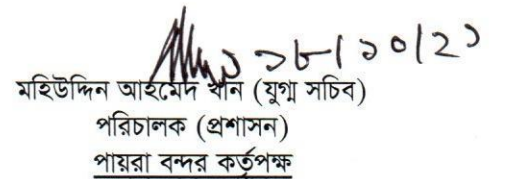 ১৮/১০/২১
মহিউদ্দিন আহমেদ খান (যুগ্ম সচিব)
পরিচালক (প্রশাসন)
পায়রা বন্দর কর্তৃপক্ষ